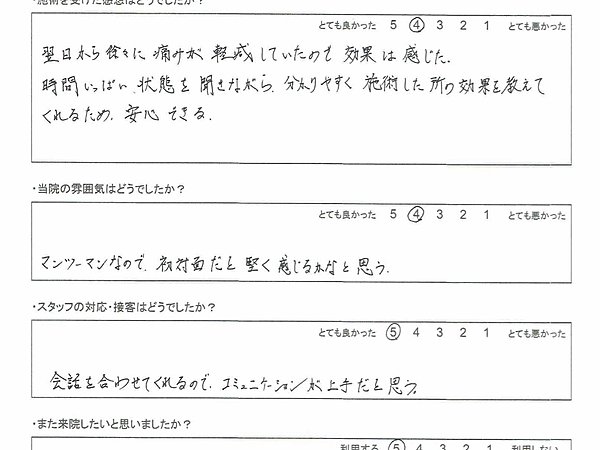 ・施術を受けた感想はどうでしたか？
とても良かった 5 4 3 2 1 とても悪かった
翌日から徐々に痛みが軽減していたので効果は感じた.
時間いっぱい、状態を聞きながら、分かりやすく施術した所の効果を教えて
くれるため、安心できる.
・当院の雰囲気はどうでしたか？
とても良かった 5 4 3 2 1 とても悪かった
マンツーマンなので、初対面だと堅く感じるかなと思う.
・スタッフの対応・接客はどうでしたか？
とても良かった 5 4 3 2 1 とても悪かった
会話を合わせてくれるので、コミュニケーションが上手だと思う.
・また来院したいと思いましたか？
利用する 5 4 3 2 1 利用しない